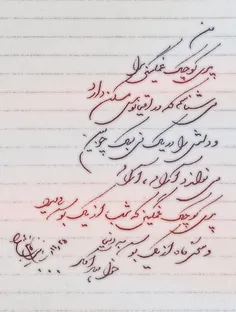 من
پری کوچک غمگینی را
می‌شناسم که در اقیانوسی مسکن دارد
و دلش را در یک نی‌لبک چوبین
می‌نوازد آرام، آرام
پری کوچک غمگینی که شب از یک بوسه می‌میرد
و سحرگاه از یک بوسه به دنیا
خواهد آمد